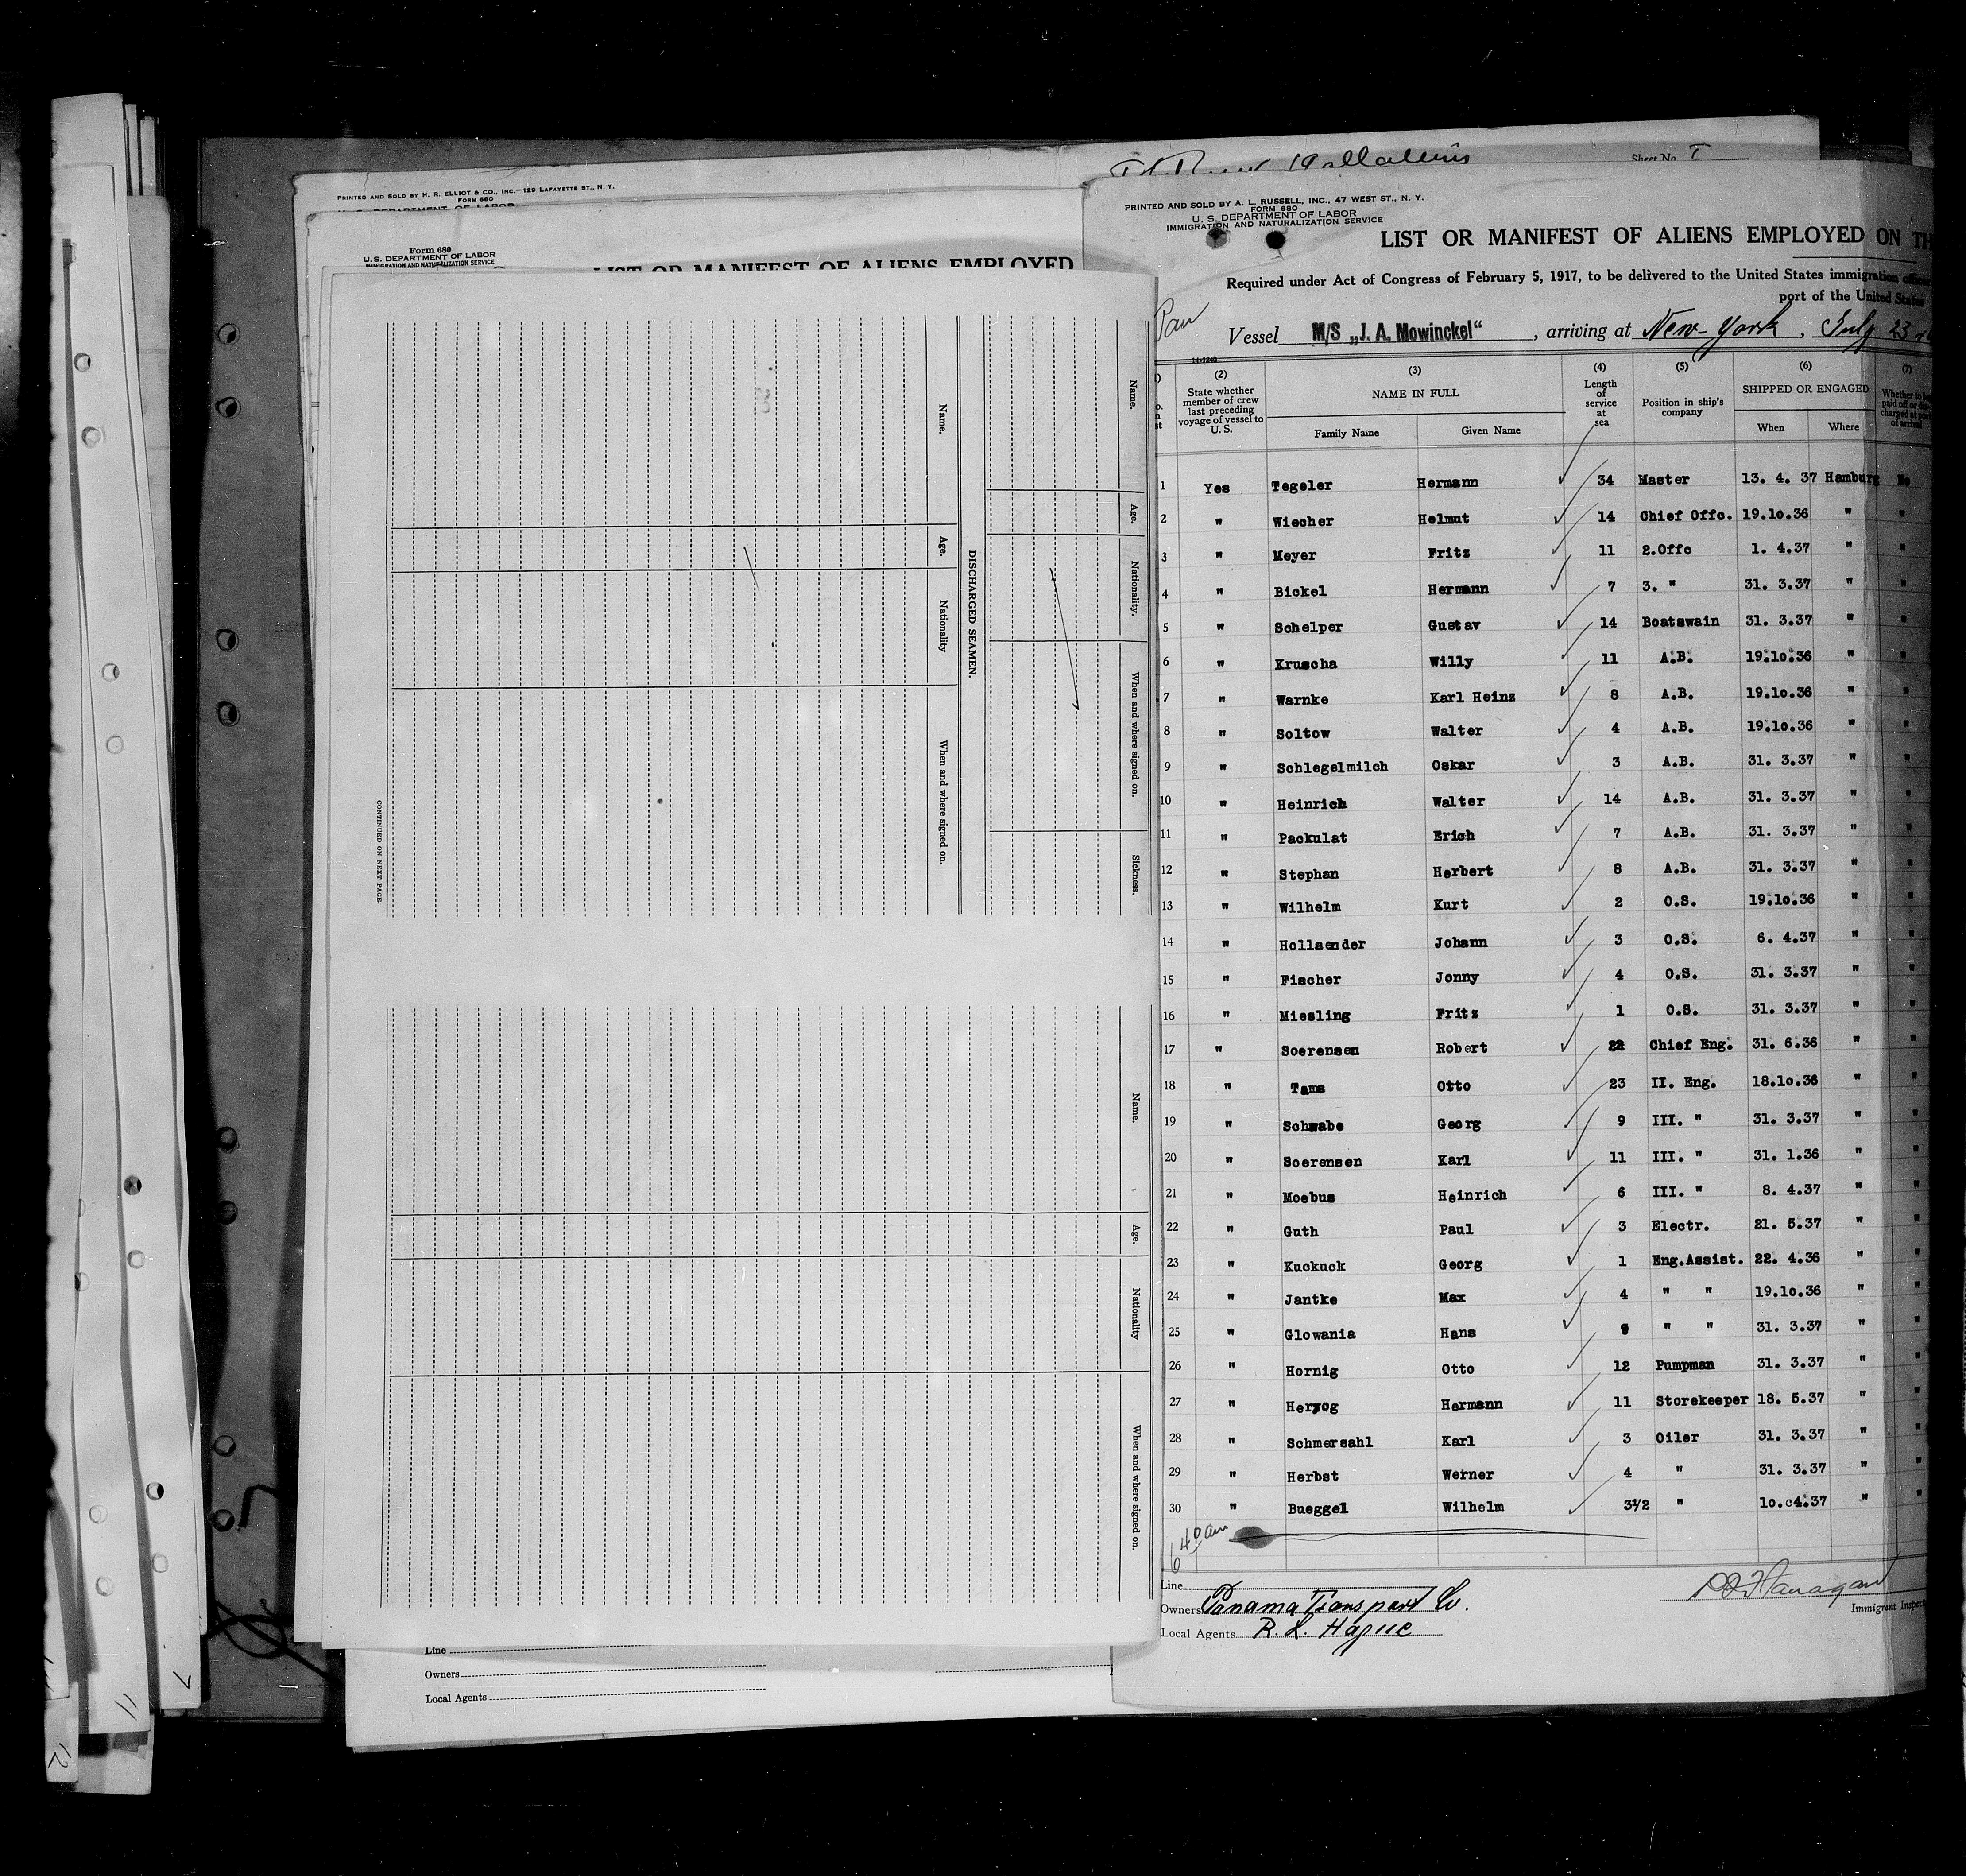 PRINTED AND SOLD BY H. R. ELLIOT & CO., INC.—129 LAFAYETTE ST., N. Y.
FORM 680
U. S. DEPARTMENT OF LABOR
Form 680
U. S. DEPARTMENT OF LABOR
IMMIGRATION AND NATURALIZATION SERVICE
LIST OR MANIFEST OF ALIENS EMPLOYED
Name.
Age.
Nationality.
When and where signed on.
Sickness.
DISCHARGED SEAMEN.
Name.
Age.
Nationality
When and where signed on.
CONTINUED ON NEXT PAGE.
Name.
Age.
Nationality
When and where signed on.
Line
Owners
Local Agents
7
11
12
Sheet No. 1
PRINTED AND SOLD BY A. L. RUSSELL, INC., 47 WEST ST., N. Y.
FORM 680
U. S. DEPARTMENT OF LABOR
IMMIGRATION AND NATURALIZATION SERVICE
LIST OR MANIFEST OF ALIENS EMPLOYED ON TH
Required under Act of Congress of February 5, 1917, to be delivered to the United States immigration officer
port of the United States
Pan
Vessel M/S „J. A. Mowinckel“ , arriving at New-York , July 23rd
14-1240
(2) (3) (4) (5) (6) (7)
State whether member of crew last preceding voyage of vessel to U. S. NAME IN FULL Length of service at sea Position in ship's company SHIPPED OR ENGAGED Whether to be paid off or discharged at port of arrival
Family Name Given Name When Where
1 Yes Tegeler Hermann 34 Master 13. 4. 37 Hamburg No
2 " Wiecher Helmut 14 Chief Offc. 19.10.36 " "
3 " Meyer Fritz 11 2.Offc 1. 4.37 " "
4 " Bickel Hermann 7 3. " 31. 3.37 " "
5 " Schelper Gustav 14 Boatswain 31. 3.37 " "
6 " Kruscha Willy 11 A.B. 19.10.36 " "
7 " Warnke Karl Heinz 8 A.B. 19.10.36 " "
8 " Soltow Walter 4 A.B. 19.10.36 " "
9 " Schlegelmilch Oskar 3 A.B. 31. 3.37 " "
10 " Heinrich Walter 14 A.B. 31. 3.37 " "
11 " Packulat Erich 7 A.B. 31. 3.37 " "
12 " Stephan Herbert 8 A.B. 31. 3.37 " "
13 " Wilhelm Kurt 2 O.S. 19.10.36 " "
14 " Hollaender Johann 3 O.S. 6. 4.37 " "
15 " Fischer Jonny 4 O.S. 31. 3.37 " "
16 " Miesling Fritz 1 O.S. 31. 3.37 " "
17 " Soerensen Robert 22 Chief Eng. 31. 6.36 " "
18 " Tams Otto 23 II. Eng. 18.10.36 " "
19 " Schwabe Georg 9 III. " 31. 3.37 " "
20 " Soerensen Karl 11 III. " 31. 1.36 " "
21 " Moebus Heinrich 6 III. " 8. 4.37 " "
22 " Guth Paul 3 Electr. 21. 5.37 " "
23 " Kuckuck Georg 1 Eng.Assist. 22. 4.36 " "
24 " Jantke Max 4 " " 19.10.36 " "
25 " Glowania Hans " " 31. 3.37 " "
26 " Hornig Otto 12 Pumpman 31. 3.37 " "
27 " Herzog Hermann 11 Storekeeper 18. 5.37 " "
28 " Schmersahl Karl 3 Oiler 31. 3.37 " "
29 " Herbst Werner 4 " 31. 3.37 " "
30 " Bueggel Wilhelm 3½ " 10.c4.37 " "
6 40 am
Line
Owners Panama Transport Co.
Local Agents R. L. Hague
Immigrant Inspec